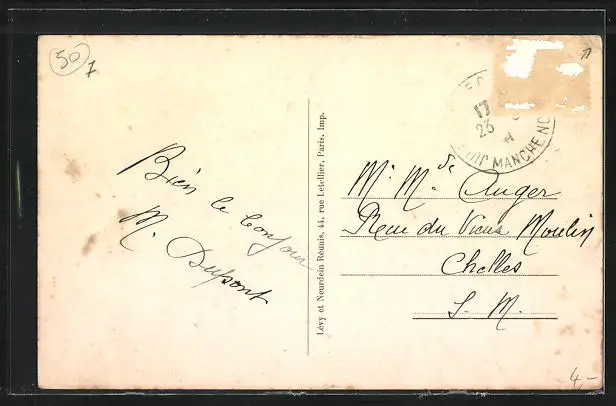 50
Bien le bonjour
M. Dupont
Lévy et Neurdein Réunis, 44, rue Letellier, Paris. Imp.
17
23
MANCHE NO
Mr Mde Auger
Rue du Vieux Moulin
Chelles
S. M.
4,-